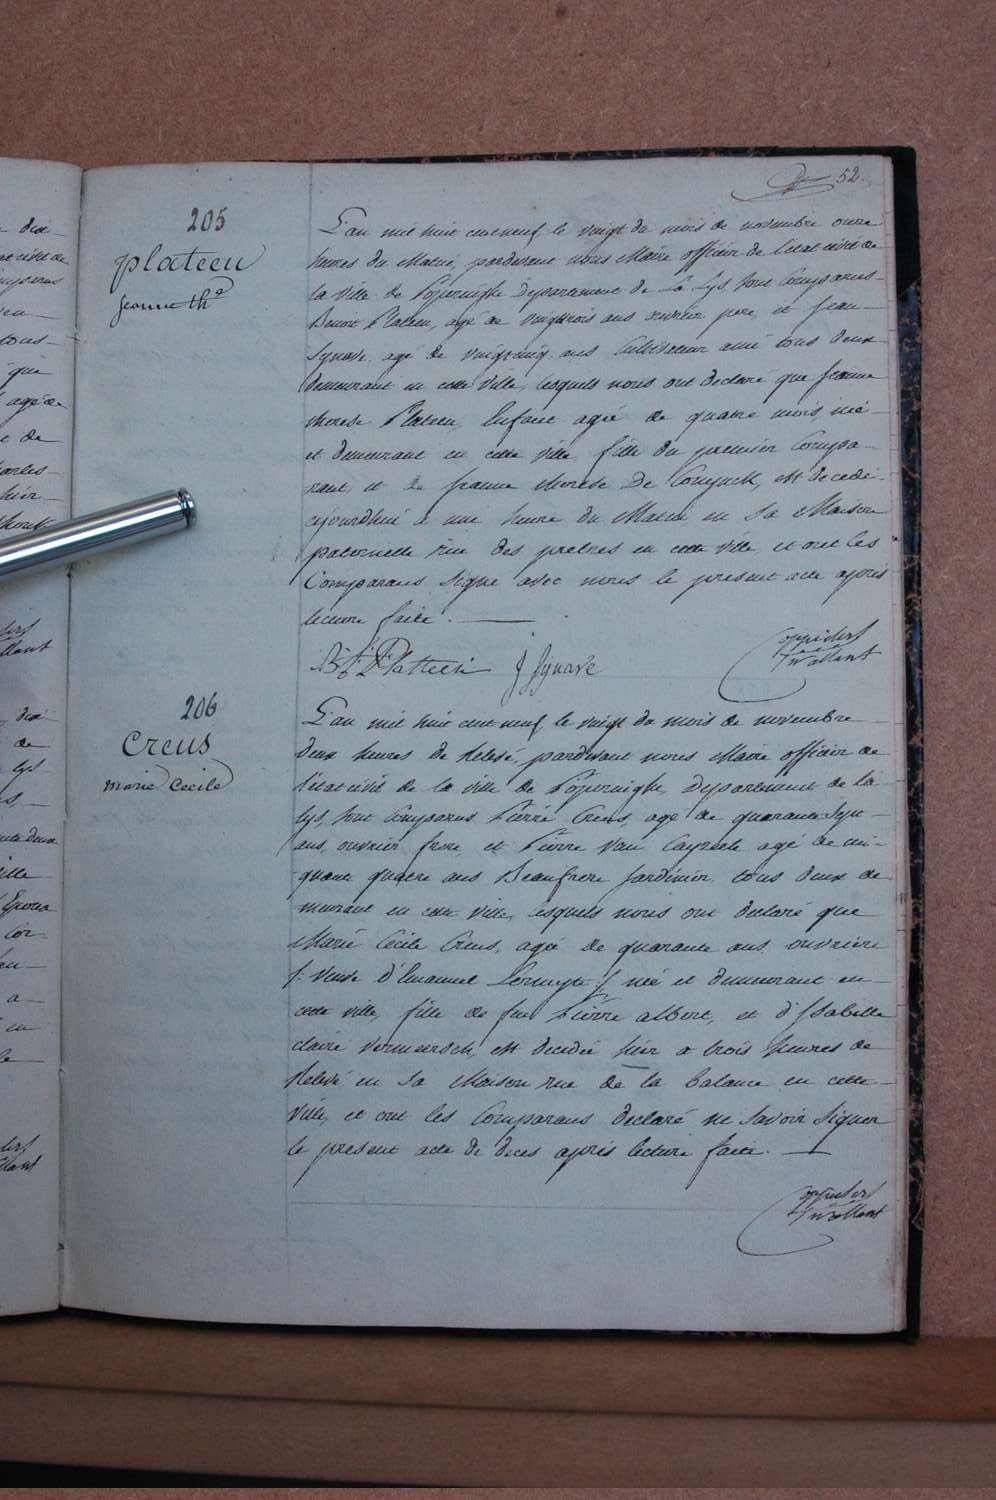 52.
205
plateeu
jeanne th.ᵃ
L'an mil huit cent neuf, le vingt du mois de novembre onze
heures du Matin, pardevant nous Maire officier de l'état civil de
la ville de Poperinghe Departement de La Lys sont Comparus
Benoit Plateeu, agé de vingt trois ans ouvrier pere, et Jean
Synave agé de vingt cinq ans Cultivateur ami tous deux
demeurant en cette ville, lesquels nous ont declaré que Jeanne
therese Plateeu, Enfant agée de quatre mois, née
et demeurant en cette ville, fille du premier Compa-
rant, et de jeanne therese De Conynck, est decedé
cejourdhui a une heure du Matin en Sa Maison
paternelle rue des pretres en cette ville, et ont les
Comparans Signé avec nous le present acte après
lecture faite.
B: f: Platteeu J Synave
206
Creus
marie Cecile
L'an mil huit cent neuf, le vingt du mois de novembre
deux heures de Relevé, pardevant nous Maire officier de
l'état civil de la ville de Poperinghe, Departement de la
Lys, sont Comparus Pierre Creus, agé de quarante Sept
ans, ouvrier frere, et Pierre Van Cayzeele agé de cin-
quant quatre ans Beaufrere Jardinier tous deux de
meurant en cette ville, lesquels nous ont declaré que
Marie Cecile Creus, agée de quarante ans ouvrière
/: Veuve d'Emanuel :/ née et demeurant en
cette ville, fille de feu Pierre albert, et d'Isabelle
claire Vermeersch, est decedée hier a trois heures de
Relevé en Sa Maison rue de la balance en cette
Ville, et ont les Comparans declaré ne Savoir Signer
le present acte de deces après lecture faite.